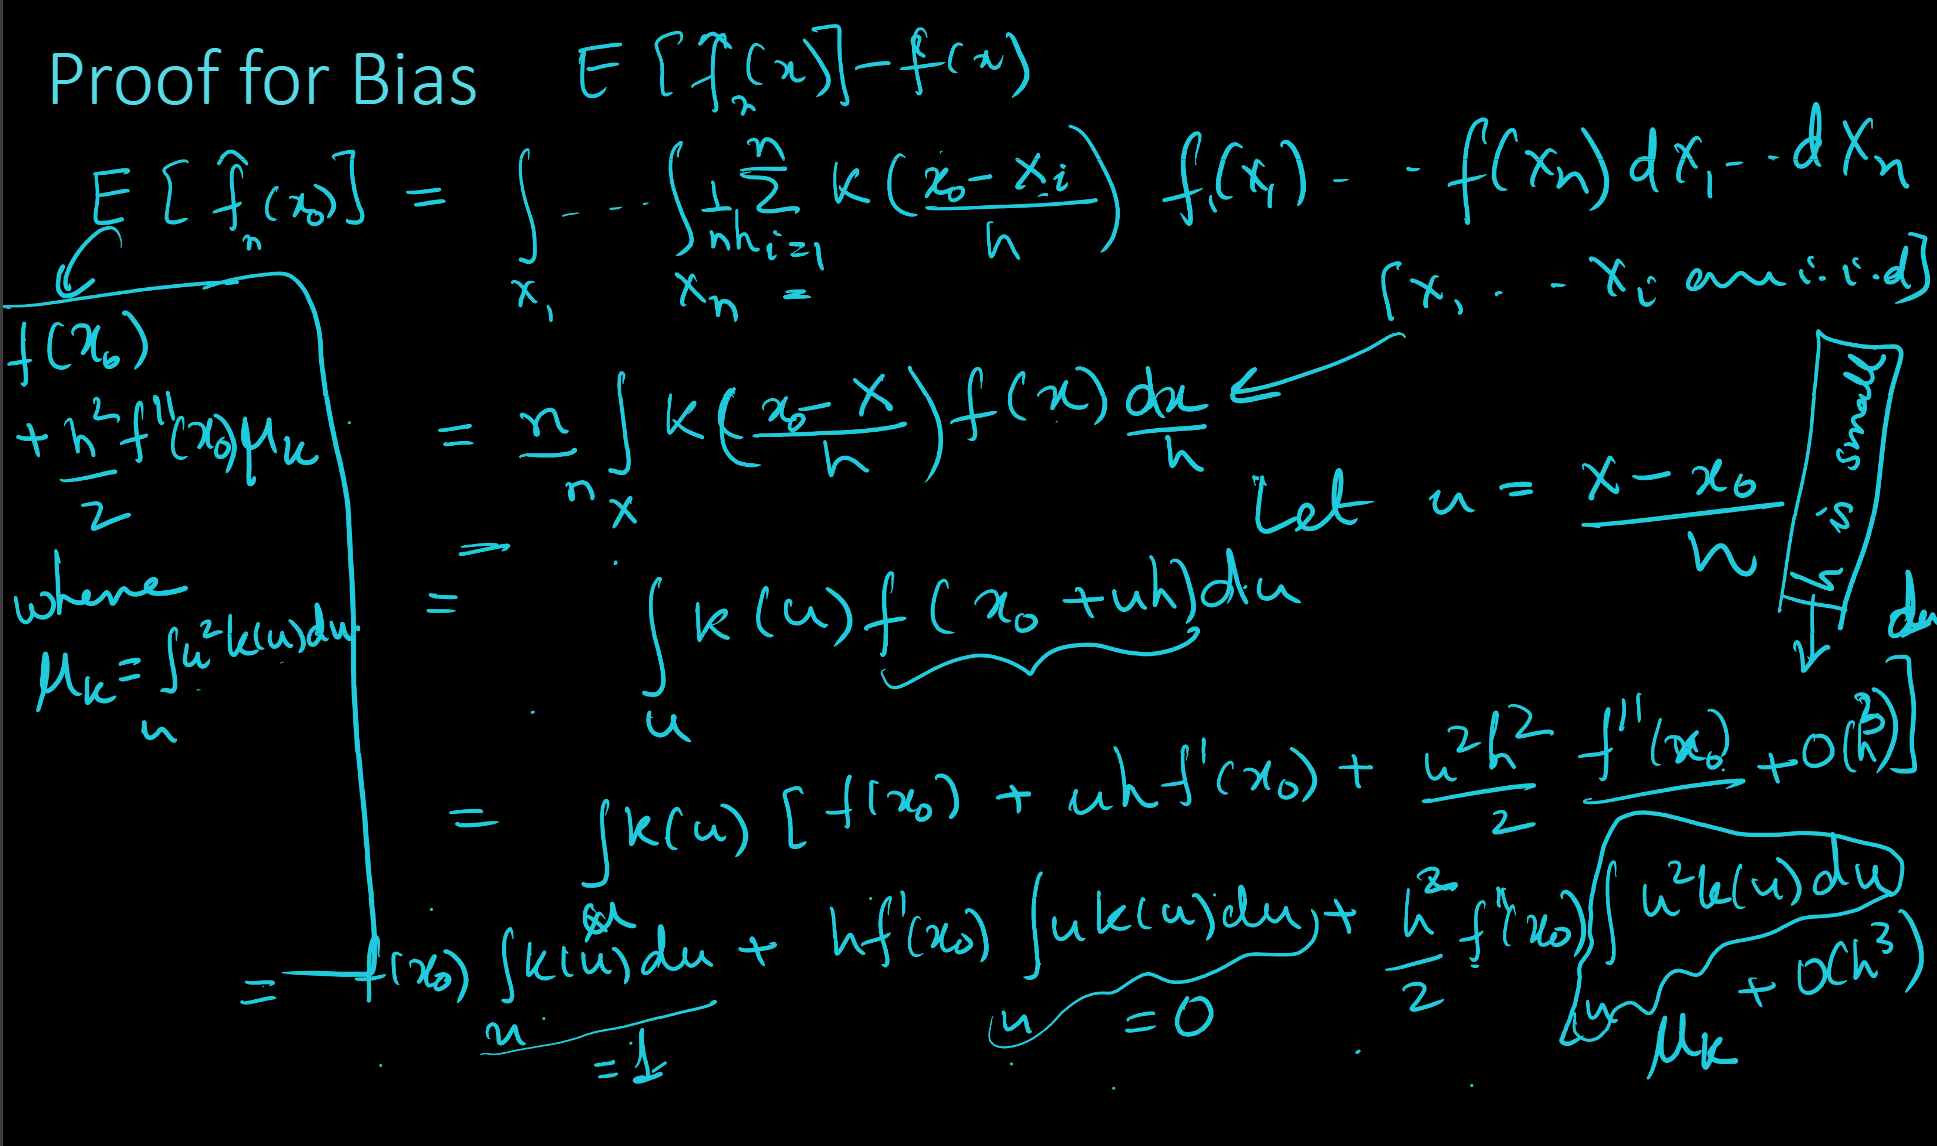 Proof for Bias E[f̂_n(x)] - f(x)
E[f̂_n(x₀)] = ∫_{X₁} ... ∫_{X_n} 1/(nh) Σ_{i=1}^{n} K((x₀ - X_i)/h) f(X₁) - - f(X_n) dX₁ - - dX_n
[X₁ . - - X_i are i.i.d]
= n/n ∫_X K((x₀ - X)/h) f(x) dx/h
Let u = (X - x₀)/h
h is small
=
= ∫_u K(u) f(x₀ + uh) du
du
= ∫_u K(u) [f(x₀) + uh f'(x₀) + u²h²/2 f''(x₀) + O(h³)]
= f(x₀) ∫_u K(u) du + h f'(x₀) ∫_u u K(u) du + h²/2 f''(x₀) ∫_u u² K(u) du + O(h³)
= 1
= 0
μ_K
f(x₀)
+ h²/2 f''(x₀) μ_K
where
μ_K = ∫_u u² K(u) du